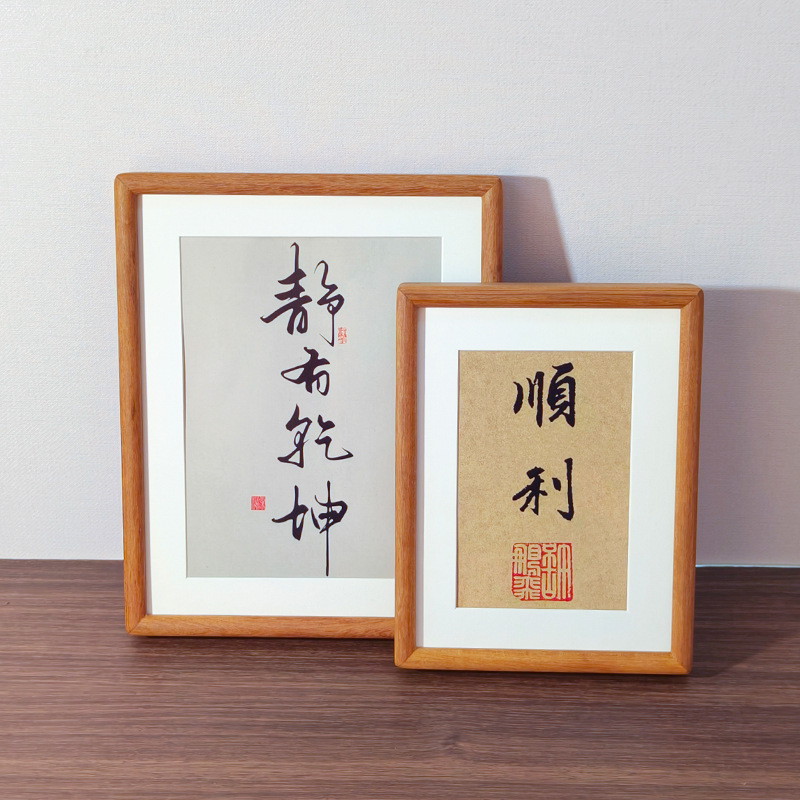 静有乾坤
順利